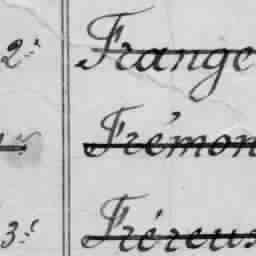 2: Frange
Frémon
3: Fréreus